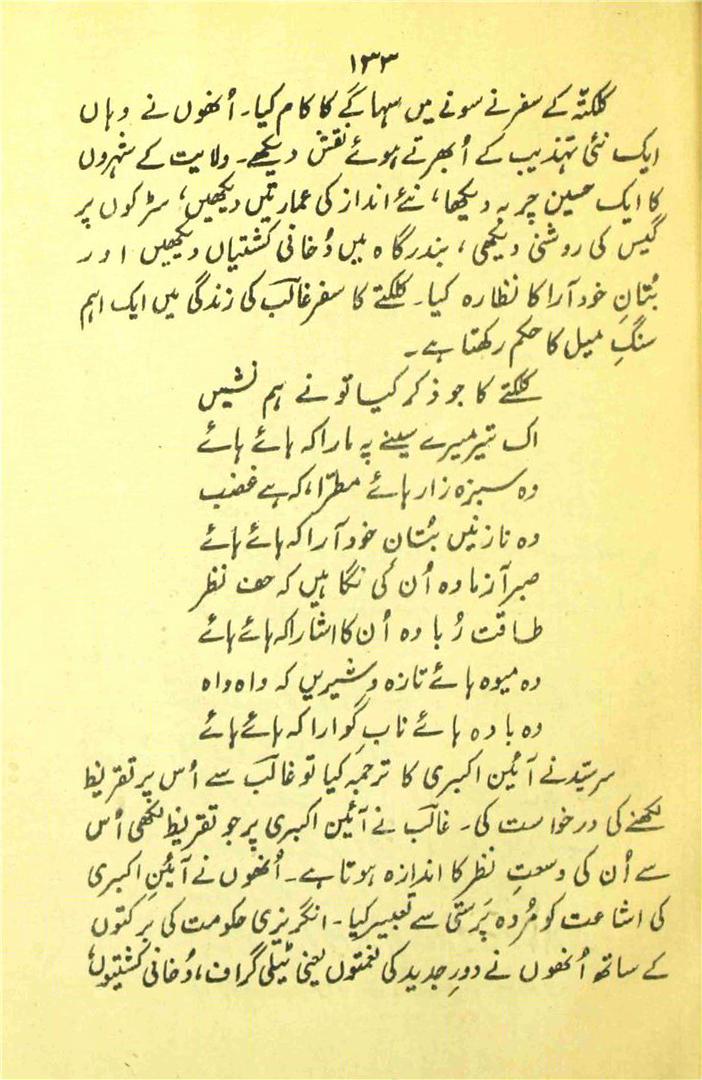 ۱۳۳
کلکتّہ کے سفر نے سونے میں سہاگے کا کام کیا۔ اُنھوں نے وہاں
ایک نئی تہذیب کے اُبھرتے ہوئے نقش دیکھے۔ ولایت کے شہروں
کا ایک حسین چربہ دیکھا، نئے انداز کی عمارتیں دیکھیں، سڑکوں پر
گیس کی روشنی دیکھی، بندرگاہ میں دُخانی کشتیاں دیکھیں اور
بُتانِ خود آرا کا نظارہ کیا۔ کلکتے کا سفر غالبؔ کی زندگی میں ایک اہم
سنگِ میل کا حکم رکھتا ہے۔
کلکتے کا جو ذکر کیا تو نے ہم نشیں
اک تیر میرے سینے پہ مارا کہ ہائے ہائے
وہ سبزہ زار ہائے مطرّا، کہ ہے غضب
وہ نازنیں بُتانِ خود آرا کہ ہائے ہائے
صبر آزما وہ اُن کی نگاہیں کہ حف نظر
طاقت رُبا وہ اُن کا اشارا کہ ہائے ہائے
وہ میوہ ہائے تازہ و شیریں کہ واہ واہ
وہ بادہ ہائے نابِ گوارا کہ ہائے ہائے
سرسیّد نے آئین اکبری کا ترجمہ کیا تو غالبؔ سے اُس پر تقریظ
لکھنے کی درخواست کی۔ غالبؔ نے آئین اکبری پر جو تقریظ لکھی اُس
سے اُن کی وسعتِ نظر کا اندازہ ہوتا ہے۔ اُنھوں نے آئینِ اکبری
کی اشاعت کو مُردہ پَرستی سے تعبیر کیا۔ انگریزی حکومت کی برکتوں
کے ساتھ اُنھوں نے دورِ جدید کی نعمتوں یعنی ٹیلی گراف، دُخانی کشتیوں،